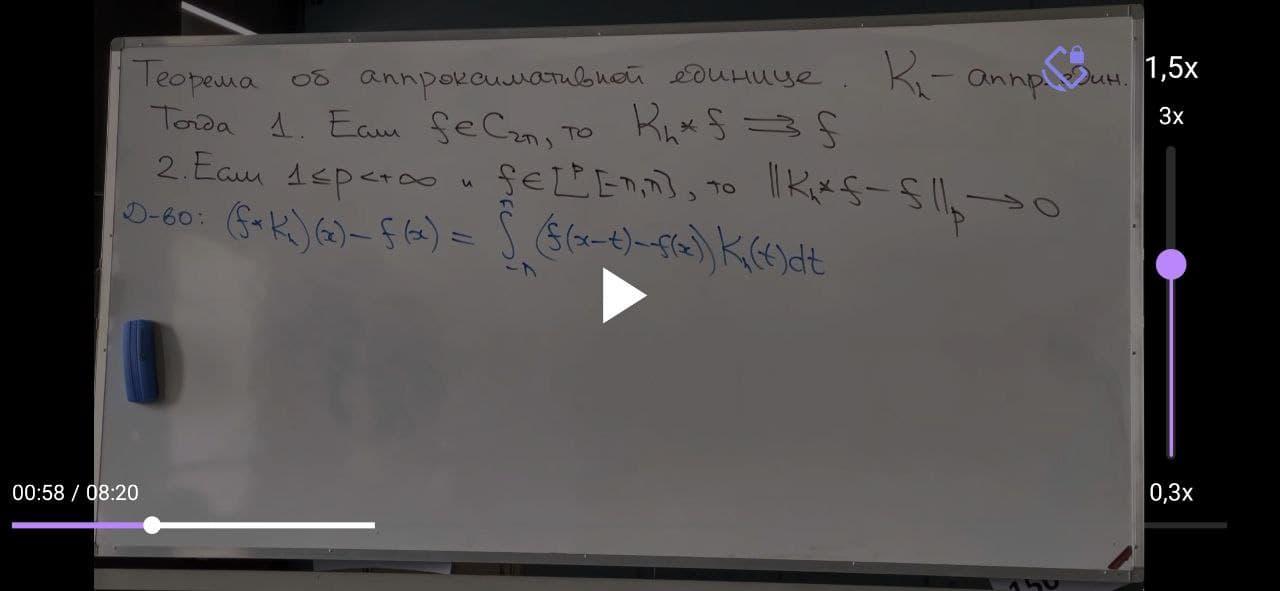 Теорема об аппроксимативной единице. K_h - аппр. един.
Тогда 1. Если f∈C_{2π}, то K_h * f ⇉ f
2. Если 1≤p<+∞ и f∈L^p[-π,π], то ||K_h * f - f||_p → 0
Д-во: (f*K_h)(x) - f(x) = ∫_{-π}^{π} (f(x-t) - f(x)) K_h(t)dt
1,5x
3x
0,3x
00:58 / 08:20